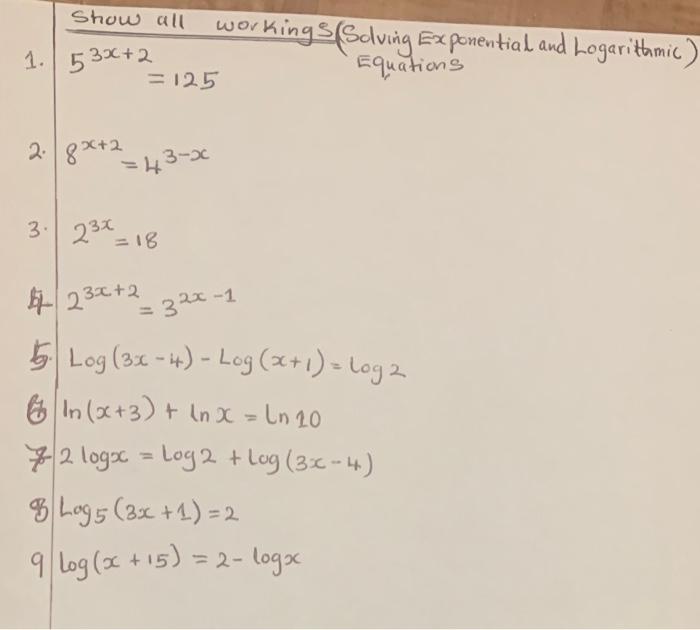 Show all workings (Solving Exponential and Logarithmic)
Equations
1. 5^{3x+2} = 125
2. 8^{x+2} = 4^{3-x}
3. 2^{3x} = 18
4 2^{3x+2} = 3^{2x-1}
5. Log(3x-4) - Log(x+1) = log 2
6 ln(x+3) + ln x = Ln 10
7 2 logx = Log 2 + Log(3x-4)
8 Log_5(3x+1) = 2
9 log(x+15) = 2 - logx